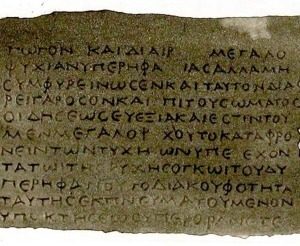 ΤΩΓΟΝ ΚΑΙΔΙΑΙΡ ΜΕΓΑΛΟ
ΥΧΙΑΝΥΠΕΡΗΦΑ ΙΑΣΑΛΛΑΜΗ
ΣΥΜΦΥΡΕΙΝΩΣΕΝΚΑΙΤΑΥΤΟΝΔΙΑ
ΡΕΙΓΑΡΟΣΟΝΚΑΙ ΠΙΤΟΥΣΩΜΑΤΟΣ
ΟΙΔΗΣΕΩΣΕΥΕΞΙΑΚΑΙΕΣΤΙΝΤΟΥ
ΜΕΝΜΕΓΑΛΟΨ ΧΟΥΤΟΚΑΤΑΦΡΟ
ΝΕΙΝΤΩΝΤΥΧΗ ΩΝΥΠΕ ΕΧΟΝ
ΤΑΤΩΙΤΗ ΥΧΗΣΟΓΚΩΙΤΟΥΔΥ
ΠΕΡΗΦΑ ΟΥΤΟΔΙΑΚΟΥΦΟΤΗΤΑ
ΤΑΥΤΗΣΕΚΠΝΕΥΜΑΤΟΥΜΕΝΟΝ